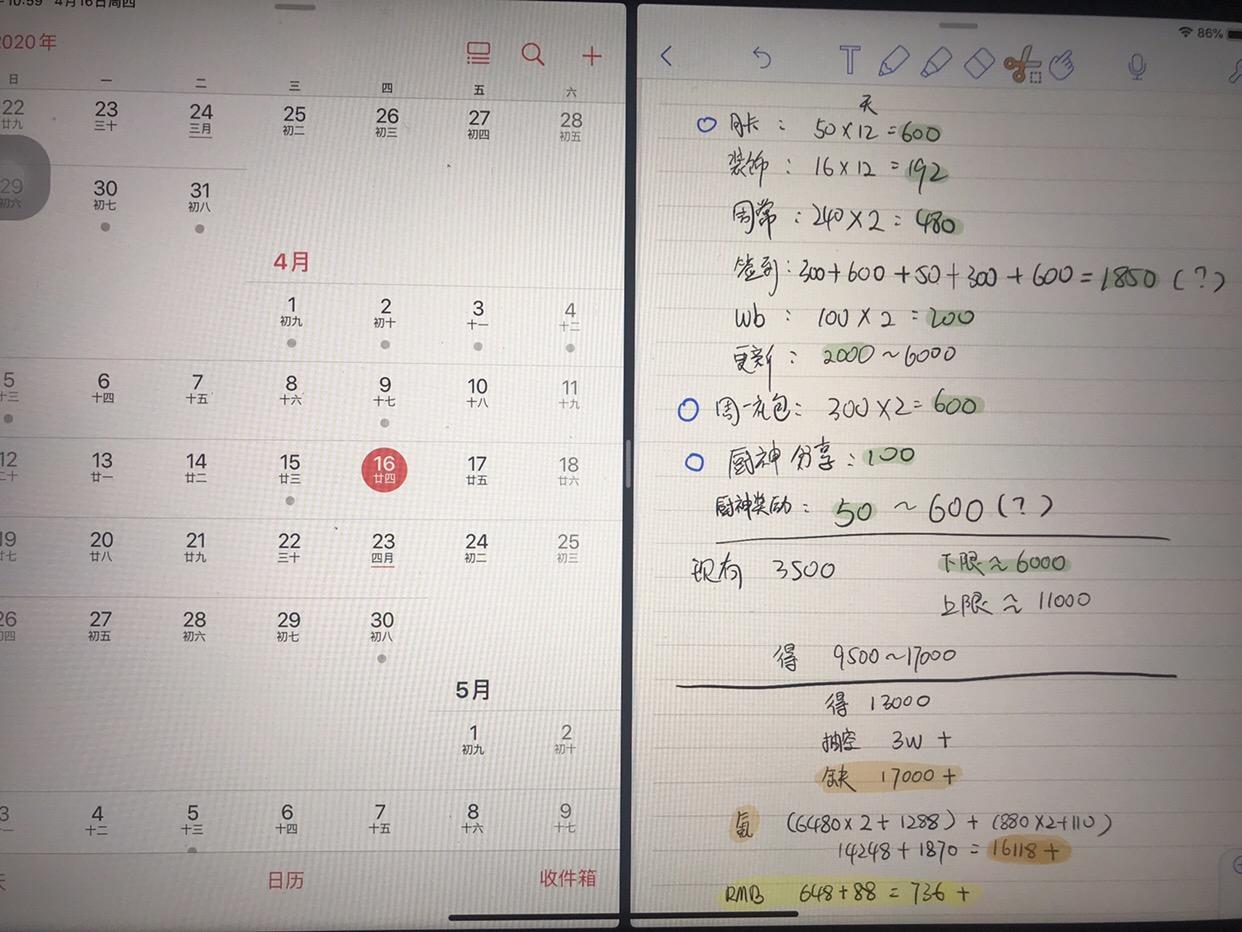 10:59 4月16日周四
2020年
日 一 二 三 四 五 六
22 23 24 25 26 27 28
廿九 三十 三月 初二 初三 初四 初五
29 30 31
初六 初七 初八
4月
1 2 3 4
初九 初十 十一 十二
5 6 7 8 9 10 11
十三 十四 十五 十六 十七 十八 十九
12 13 14 15 16 17 18
二十 廿一 廿二 廿三 廿四 廿五 廿六
19 20 21 22 23 24 25
廿七 廿八 廿九 三十 四月 初二 初三
26 27 28 29 30
初四 初五 初六 初七 初八
5月
1 2
初九 初十
3 4 5 6 7 8 9
十一 十二 十三 十四 十五 十六 十七
天 日历 收件箱
86%
T
天
月卡： 50×12=600
装饰：16×12=192
周常：240×2=480
签到：300+600+50+300+600=1850（?）
wb：100×2=200
更新：2000~6000
周一礼包：300×2=600
厨神分享：100
厨神奖励：50~600(?)
现有 3500 下限≈6000
上限≈11000
得 9500~17000
得 13000
抽空 3W+
缺 17000+
氪 (6480×2+1288)+(880×2+110)
14248+1870=16118+
RMB 648+88=736+